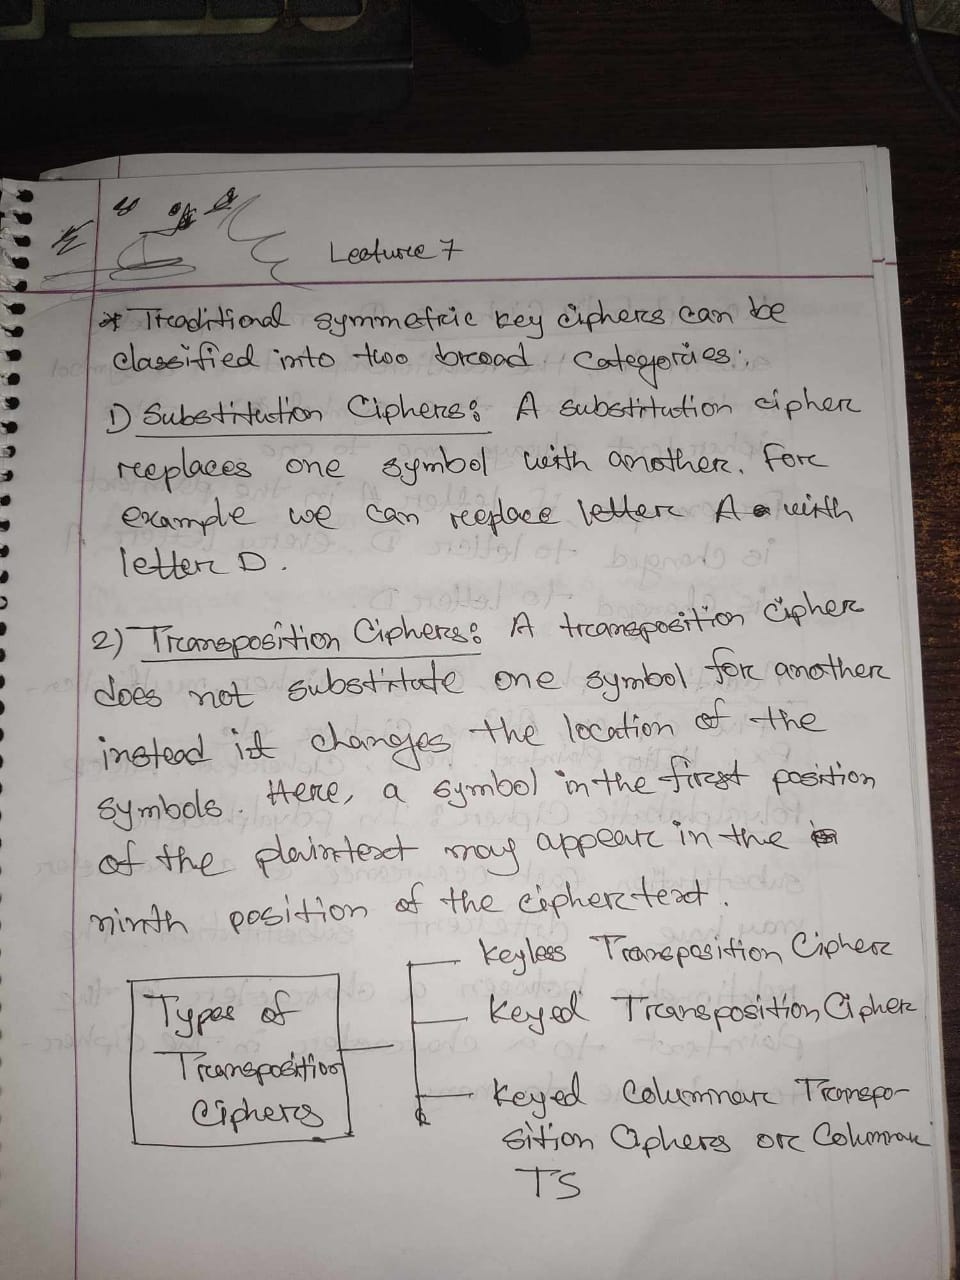 Lecture 7
* Traditional symmetric key ciphers can be
classified into two broad Categories:
1) Substitution Ciphers: A substitution cipher
replaces one symbol with another. For
example we can replace letter A with
letter D.
2) Transposition Ciphers: A transposition Cipher
does not substitute one symbol for another
instead it changes the location of the
symbols. Here, a symbol in the first position
of the plaintext may appear in the
ninth position of the ciphertext.
Keyless Transposition Cipher
Types of
Transposition
Ciphers
Keyed Transposition Cipher
Keyed Columnar Transpo-
sition Ciphers or Columnar
TS